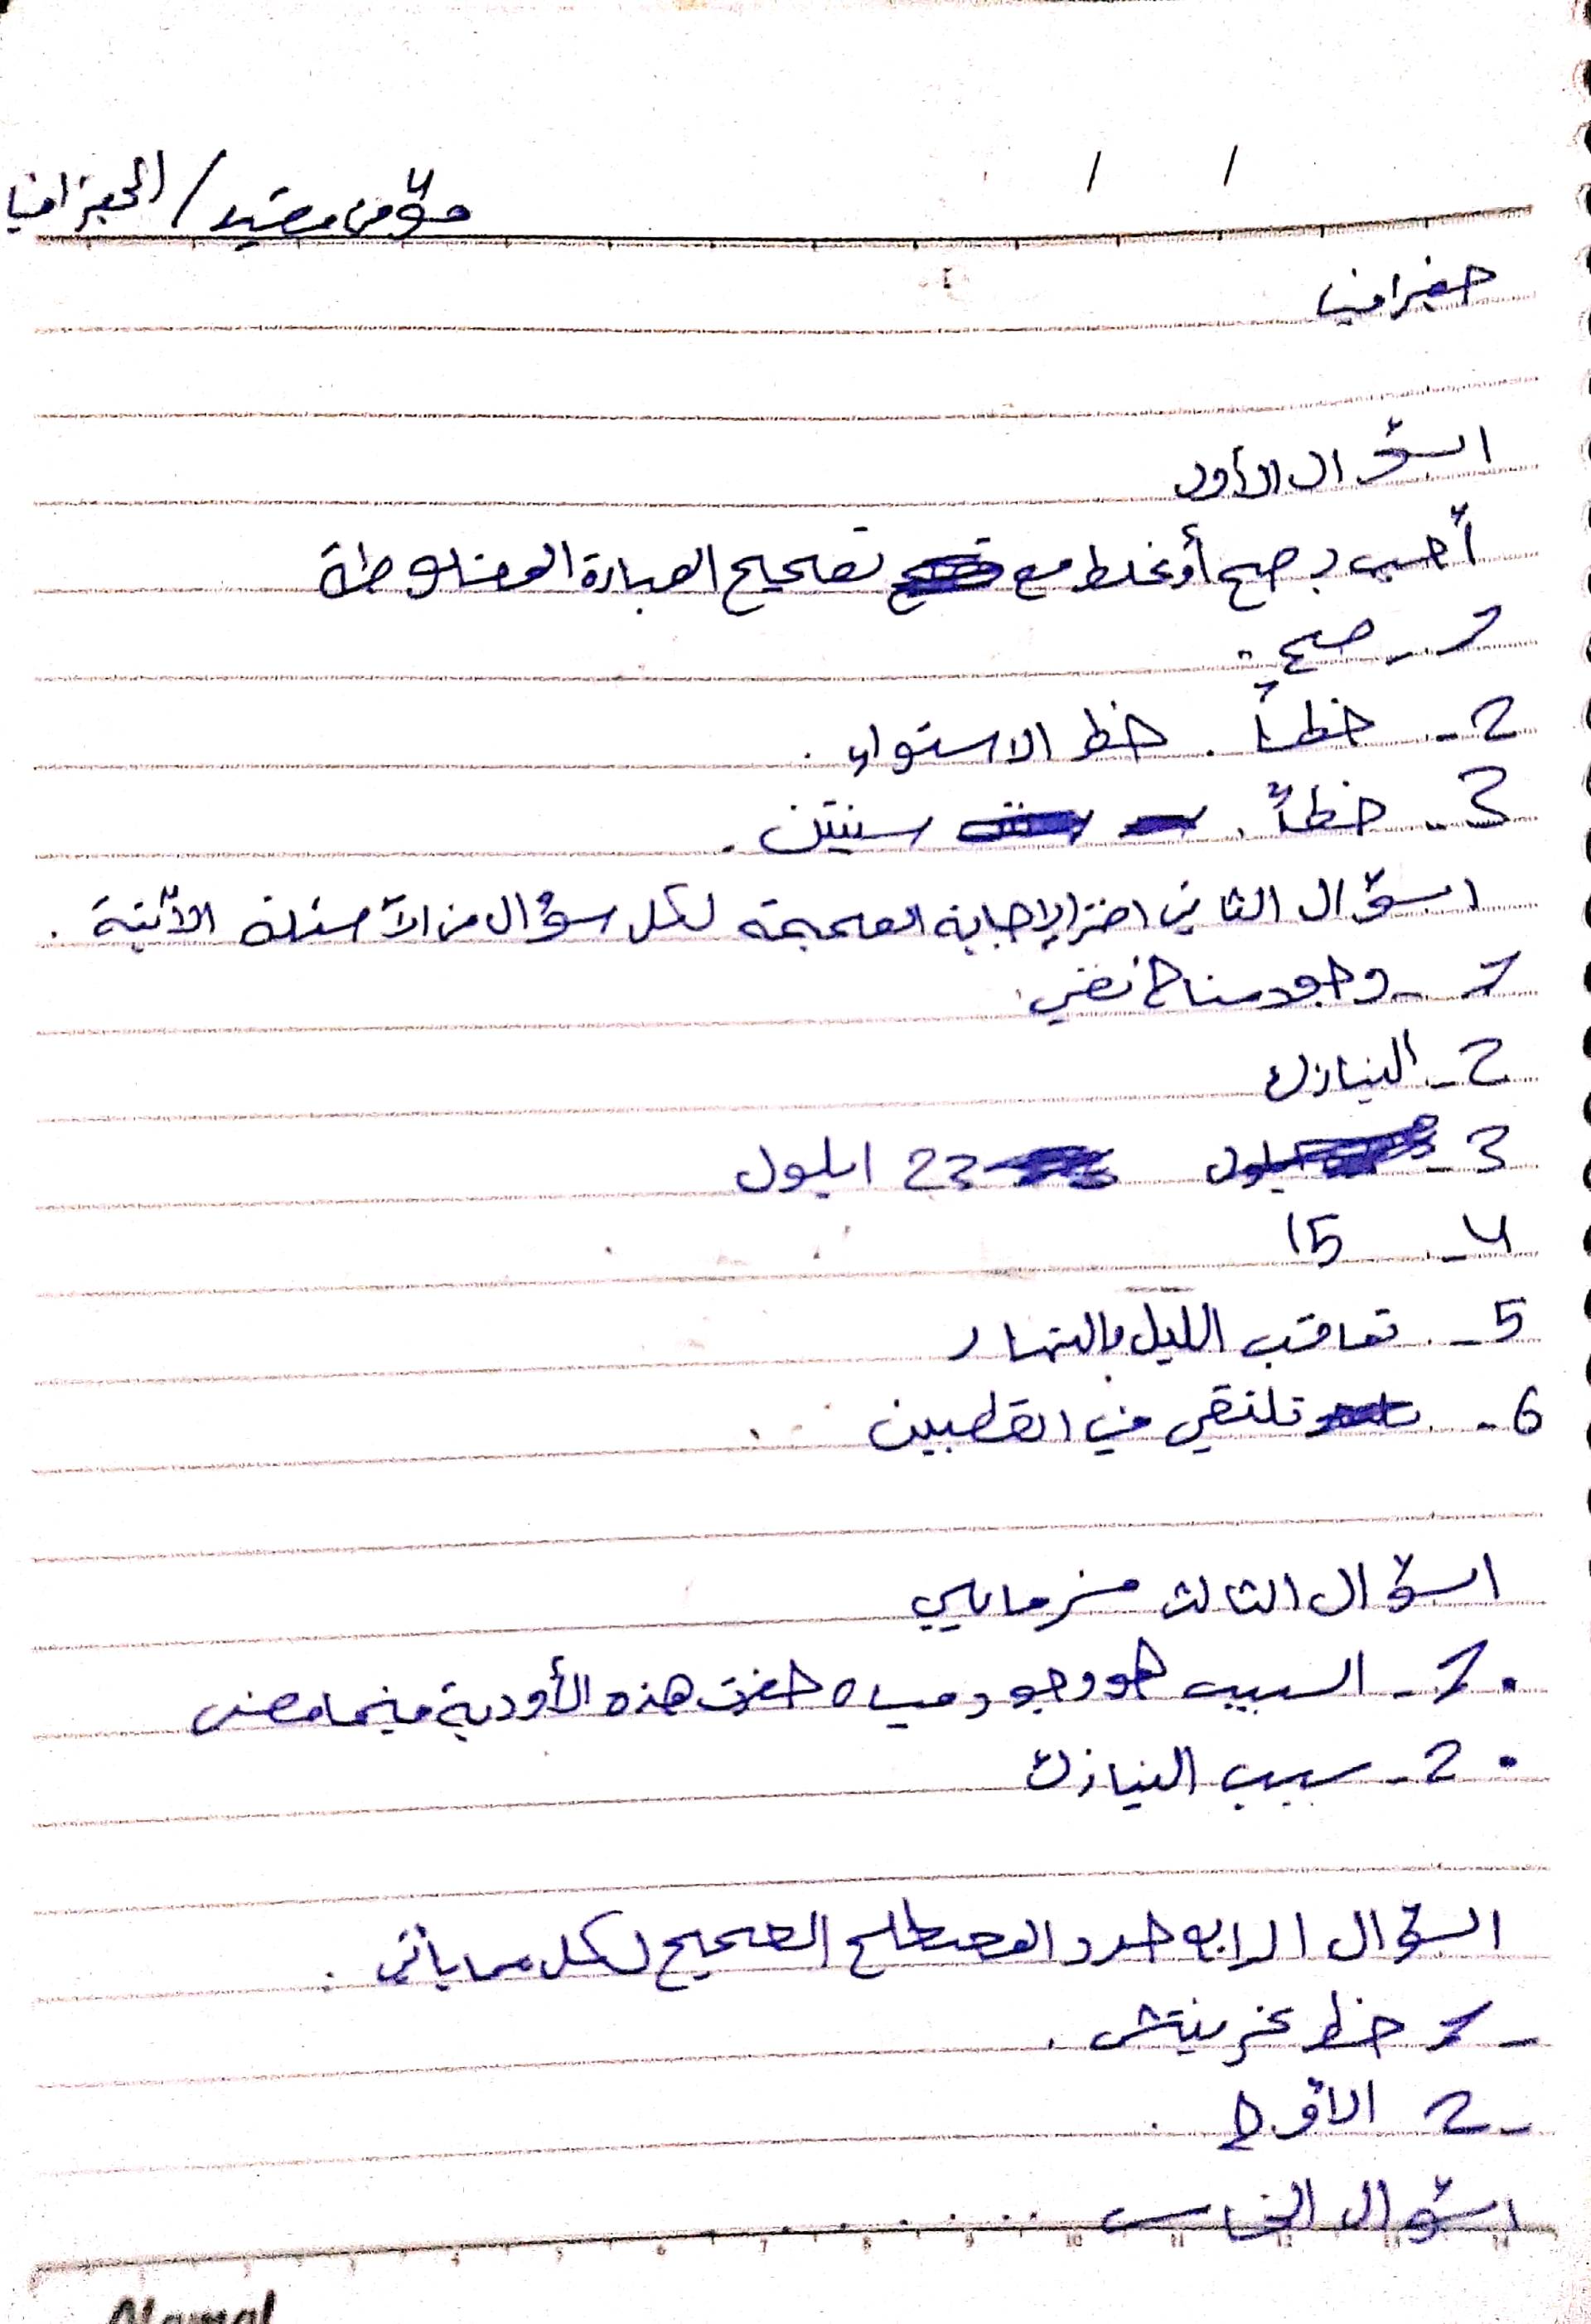 مؤمن مقيد / الجغرافيا
/ /
جغرافيا
السؤال الأول
أجيب بصح أو غلط مع تصحيح العبارة المغلوطة
1- صح.
2- خطأ. خط الاستواء.
3- خطأ. سنتين.
اسؤال الثاني اختر الإجابة الصحيحة لكل سؤال من الأسئلة الآتية.
1- وجود مناخ نقي.
2- النيازك
3- 23 ايلول
4- 15
5- تعاقب الليل والنهار
6- تلتقي في القطبين
السؤال الثالث فسر مايلي
1- السبب هو وجود مياه حفرت هذه الأودية فيما مضى
2- سبب النيازك
السؤال الرابع حدد المصطلح الصحيح لكل مما يأتي.
- 1 خط غرينتش.
- 2 الأوج.
اسؤال الخامس
4 5 6 7 8 9 10 11 12 13 14
Alamal